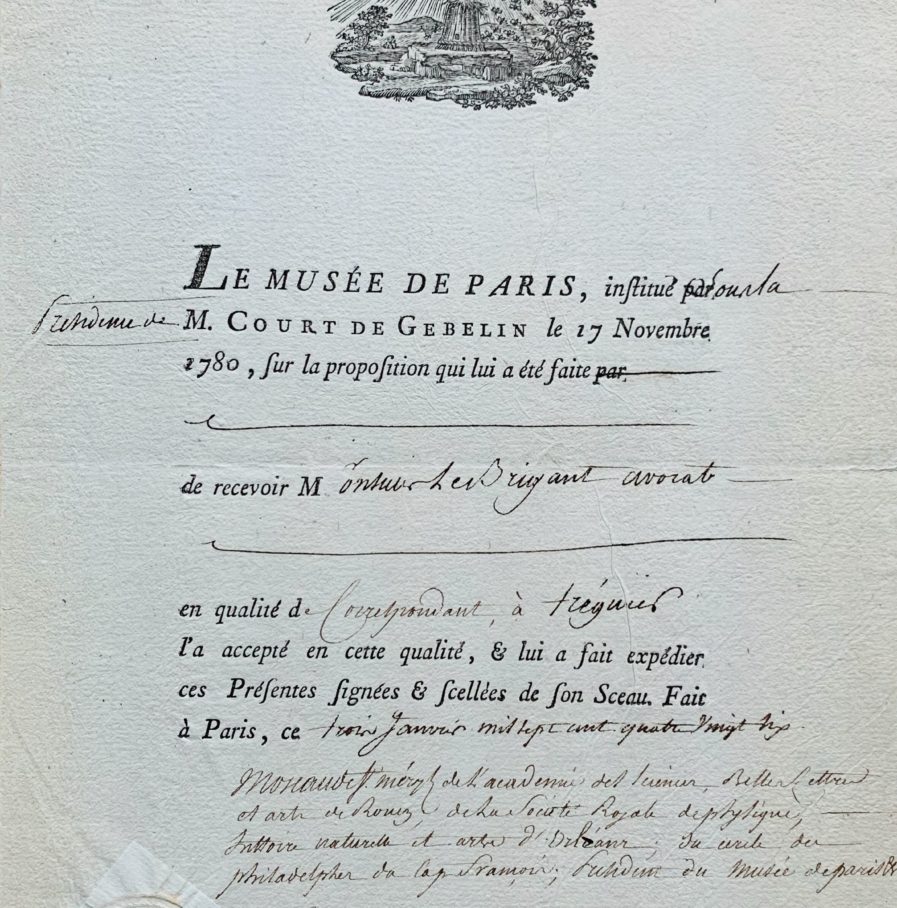 LE MUSÉE DE PARIS, inſtitué par sous la
Présidence de M. COURT DE GEBELIN le 17 Novembre
1780, ſur la propoſition qui lui a été faite par
de recevoir M onsieur Le Brigant avocat
en qualité de Correspondant, à tréguier
l'a accepté en cette qualité, & lui a fait expédier
ces Préſentes ſignées & ſcellées de ſon Sceau. Fait
à Paris, ce trois Janvier mil sept cent quatre vingt six
de L'academie des Sciences, Belles Lettres
et arts de Rouen, de la Société Royale de physique,
histoire naturelle et arts d'Orléans; du cercle des
philadelphes du Cap François; Président du musée de paris &c